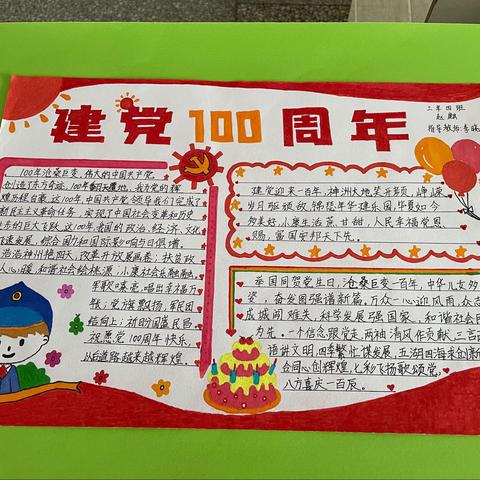 建党100周年
二年四班
赵麒
指导教师:李晓
100年沧桑巨变,伟大的中国共产党
创造了东方奇迹,100年翻天覆地,我为党的辉
煌历程自豪,这100年,中国共产党领导我们完成了
新民主主义革命任务,实现了中国社会变革和历史
进步的巨大飞跃,这100年,我国的政治、经济、文化
飞速发展,综合国力和国际影响与日俱增。
神州艳四大,改革开放展画卷;扶贫政
人心暖,和谐社会绘桃源,小巢社会乐融融,
军歌嘹亮,唱出幸福万
年;党旗飘扬,军民团
结向上;祈盼国盛民昌,
祝愿党100周年快乐,
从此道路越来越辉煌。
建党迎来一百年,神州大地笑开颜,峥嵘
岁月坚顽敌,锦瑟年华建乐园,华夏如今
多美好,小康生活蕉甘甜,人民幸福党恩
赐,富国安邦天下先。
举国同贺党生日,沧桑巨变一百年,中华儿女多
姿,奋发图强谱新篇,万众一心迎风雨,众志
成城闯难关,科学发展强国家,和谐社会民
为先。一个信念跟党走,两袖清风作贡献,三言
语讲文明,四季繁忙谋发展,五湖四海来创新
合同心创辉煌,七彩飞扬歌颂党,
八方喜庆一百辰。